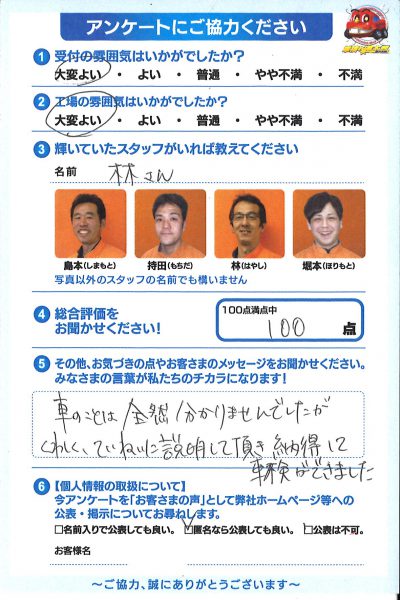 アンケートにご協力ください
1 受付の雰囲気はいかがでしたか?
大変よい ・ よい ・ 普通 ・ やや不満 ・ 不満
2 工場の雰囲気はいかがでしたか?
大変よい ・ よい ・ 普通 ・ やや不満 ・ 不満
3 輝いていたスタッフがいれば教えてください
名前 林さん
島本(しまもと) 持田(もちだ) 林(はやし) 堀本(ほりもと)
写真以外のスタッフの名前でも構いません
4 総合評価を
お聞かせください!
100点満点中
100 点
5 その他、お気づきの点やお客さまのメッセージをお聞かせください。
みなさまの言葉が私たちのチカラになります!
車のことは全然分かりませんでしたが
くわしく、ていねいに説明して頂き納得して
車検ができました
6 【個人情報の取扱について】
今アンケートを「お客さまの声」として弊社ホームページ等への
公表・掲示についてお尋ねします。
□名前入りで公表しても良い。 ☑匿名なら公表しても良い。 □公表は不可。
お客様名
〜ご協力、誠にありがとうございます〜